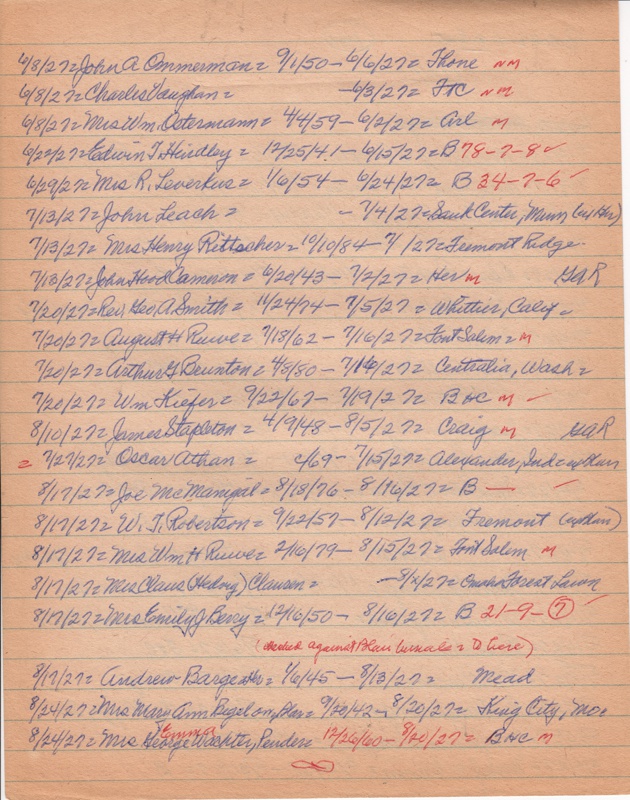 6/8/27= John A Ommerman = 9/1/50 — 6/6/27= Ftione NM
6/8/27= Charles Vaughan = — 6/3/27= FTC NM
6/8/27= Mrs Wm. Ostermann = 4/4/59 — 6/2/27= Arl M
6/22/27= Edwin T. Hindley = 12/25/41 — 6/15/27= B 78-7-8 ✓
6/29/27= Mrs R. Leverkus = 1/6/54 — 6/24/27= B 34-7-6 ✓
7/13/27= John Leach = — 7/4/27= Sauk Center, Minn (ex Her)
7/13/27= Mrs Henry Rittscher = 10/10/84 — 7/ /27= Fremont Ridge.
7/13/27= John Hood Cameron = 6/20/43 — 7/2/27= Her M GAR
7/20/27= Rev. Geo. A. Smith = 11/24/74 — 7/5/27= Whittier, Calif =
7/20/27= August H Ruwe = 7/18/62 — 7/16/27= Font Salem = M
7/20/27= Arthur G Brunton = 4/8/80 — 7/16/27= Centralia, Wash =
7/20/27= Wm Kiefer = 9/22/67 — 7/19/27= BHC M — ✓
8/10/27= James Stapleton = 4/9/48 — 8/5/27= Craig M GAR
= 7/27/27= Oscar Athan = c/69 — 7/15/27= Alexander, Ind =
8/17/27= Joe McManigal = 8/18/76 — 8/16/27= B — ✓
8/17/27= W. T. Robertson = 9/22/57 — 8/12/27= Fremont (ex Blair)
8/17/27= Mrs Wm H Ruwe = 2/16/79 — 8/15/27= Font Salem M
8/17/27= Mrs Claus (Hedwig) Clausen = — 8/x/27= Omaha Forest Lawn
8/17/27= Mrs Emily J Berry = 12/16/50 — 8/16/27= B 21-9-⑦ ✓
(checked against Blair burials = to here)
8/17/27= Andrew Barge = 1/6/45 — 8/13/27= Mead
8/24/27= Mrs Mary Ann Bigelow, = 9/20/42 — 8/20/27= King City, Mo =
8/24/27= Mrs Emma George Wachter, Pender = 12/26/60 — 8/20/27= BHC M